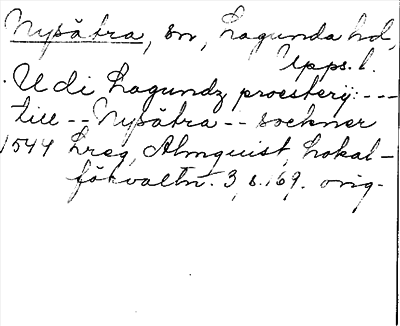 Nysätra, sn, Lagunda hd,
Upps. l.
Udi Lagundz proesterij: ---
till -- Nysätra -- sockner
1544 Lreg, Almquist, Lokal-
förvaltn. 3, s. 169. orig.